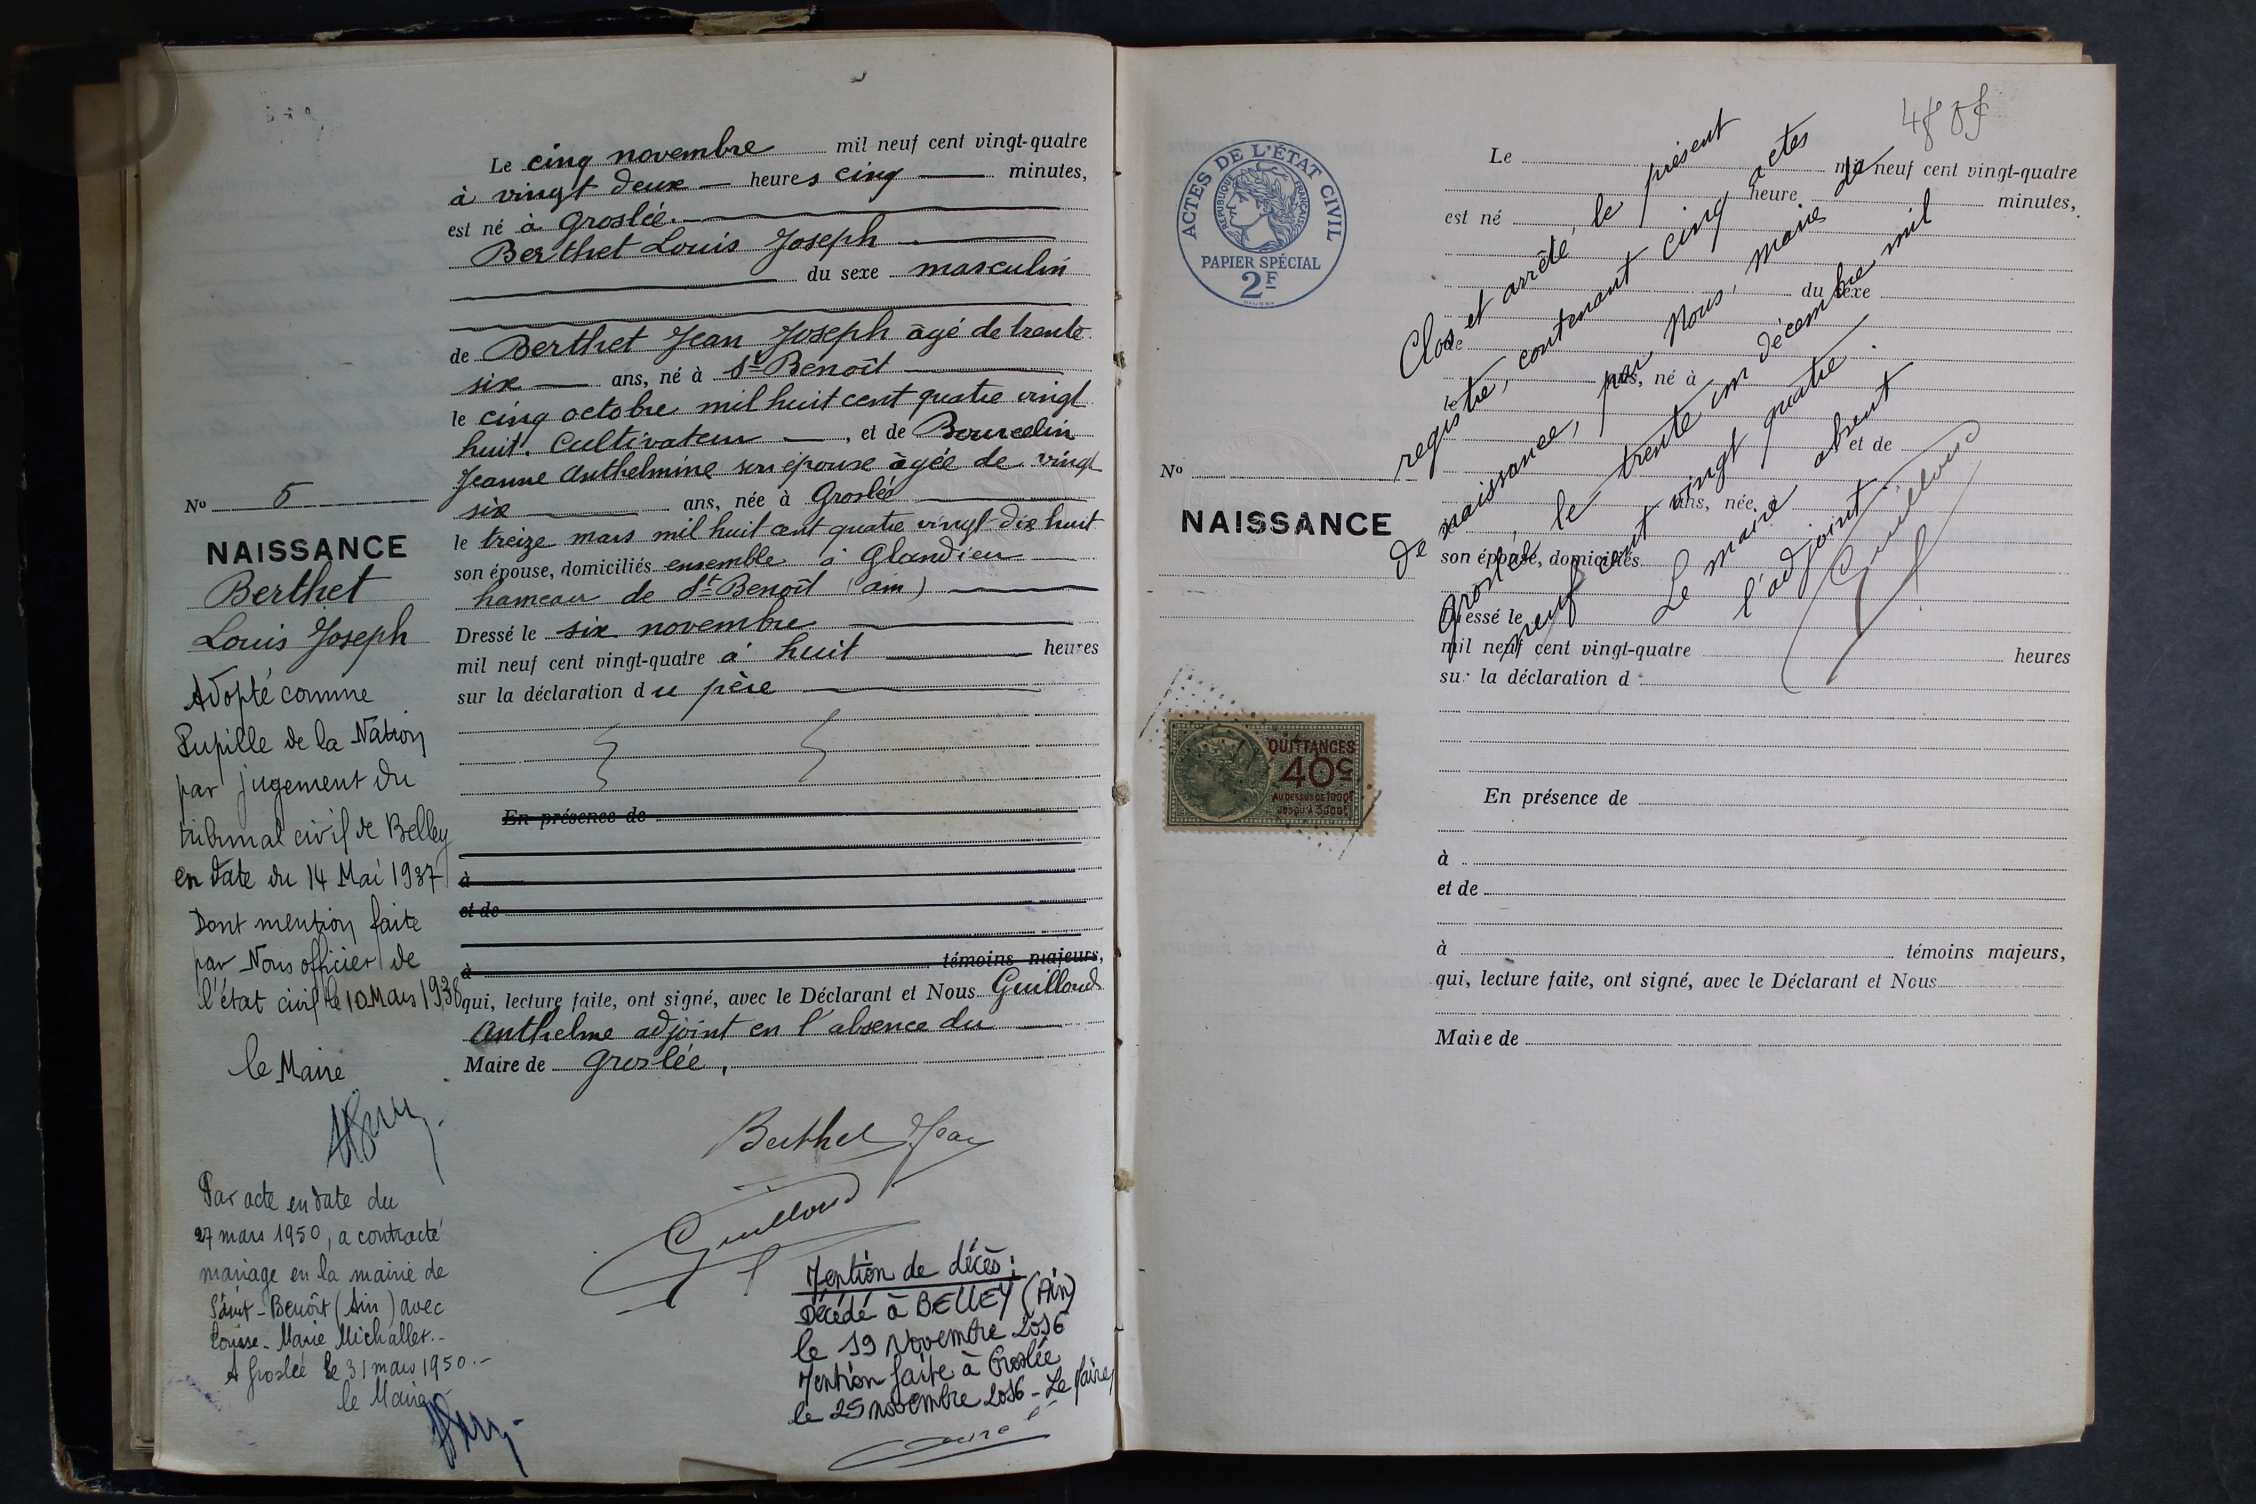 Le cinq novembre mil neuf cent vingt-quatre
à vingt deux heures cinq minutes,
est né à Groslée.
Berthet Louis Joseph
du sexe masculin
de Berthet Jean Joseph âgé de trente
six ans, né à St Benoît
le cinq octobre mil huit cent quatre vingt
huit. Cultivateur, et de Bourcelin
Jeanne Anthelmine son épouse âgée de vingt
six ans, née à Groslée
le treize mars mil huit cent quatre vingt dix huit
son épouse, domiciliés ensemble à Glandieu
hameau de St Benoît (ain)
Dressé le six novembre
mil neuf cent vingt-quatre à huit heures
sur la déclaration du père
En présence de
à
et de
à témoins majeurs,
qui, lecture faite, ont signé, avec le Déclarant et Nous Guilloud
Anthelme adjoint en l'absence du
Maire de Groslée,
Berthet Jean
Guilloud
Mention de décès :
Décédé à BELLEY (Ain)
le 19 Novembre 2016
Mention faite à Groslée
le 25 novembre 2016 - Le Maire,
No 5
NAISSANCE
Berthet
Louis Joseph
Adopté comme
Pupille de la Nation
par jugement du
tribunal civil de Belley
en date du 14 Mai 1937
Dont mention faite
par Nous officier de
l'état civil le 10 Mars 1938
le Maire
Par acte en date du
27 mars 1950, a contracté
mariage en la mairie de
Saint-Benoît (Ain) avec
Louise-Marie Michallet.-
A Groslée le 31 mars 1950.-
le Maire
ACTES DE L'ÉTAT CIVIL
RÉPUBLIQUE FRANÇAISE
PAPIER SPÉCIAL
2F
No
NAISSANCE
QUITTANCES
40c
AU DESSUS DE 1000F
JUSQU'À 3000F
Le mil neuf cent vingt-quatre
heure minutes,
est né
du sexe
de
ans, né à
le
et de
ans, née à
son épouse, domiciliés
Dressé le
mil neuf cent vingt-quatre heures
sur la déclaration d
En présence de
à
et de
à témoins majeurs,
qui, lecture faite, ont signé, avec le Déclarant et Nous
Maire de
Clos et arrêté, le présent
registre, contenant cinq actes
de naissance, par Nous, maire de
Groslée le trente un décembre mil
neuf cent vingt quatre.
Le maire absent
l'adjoint
Guilloud